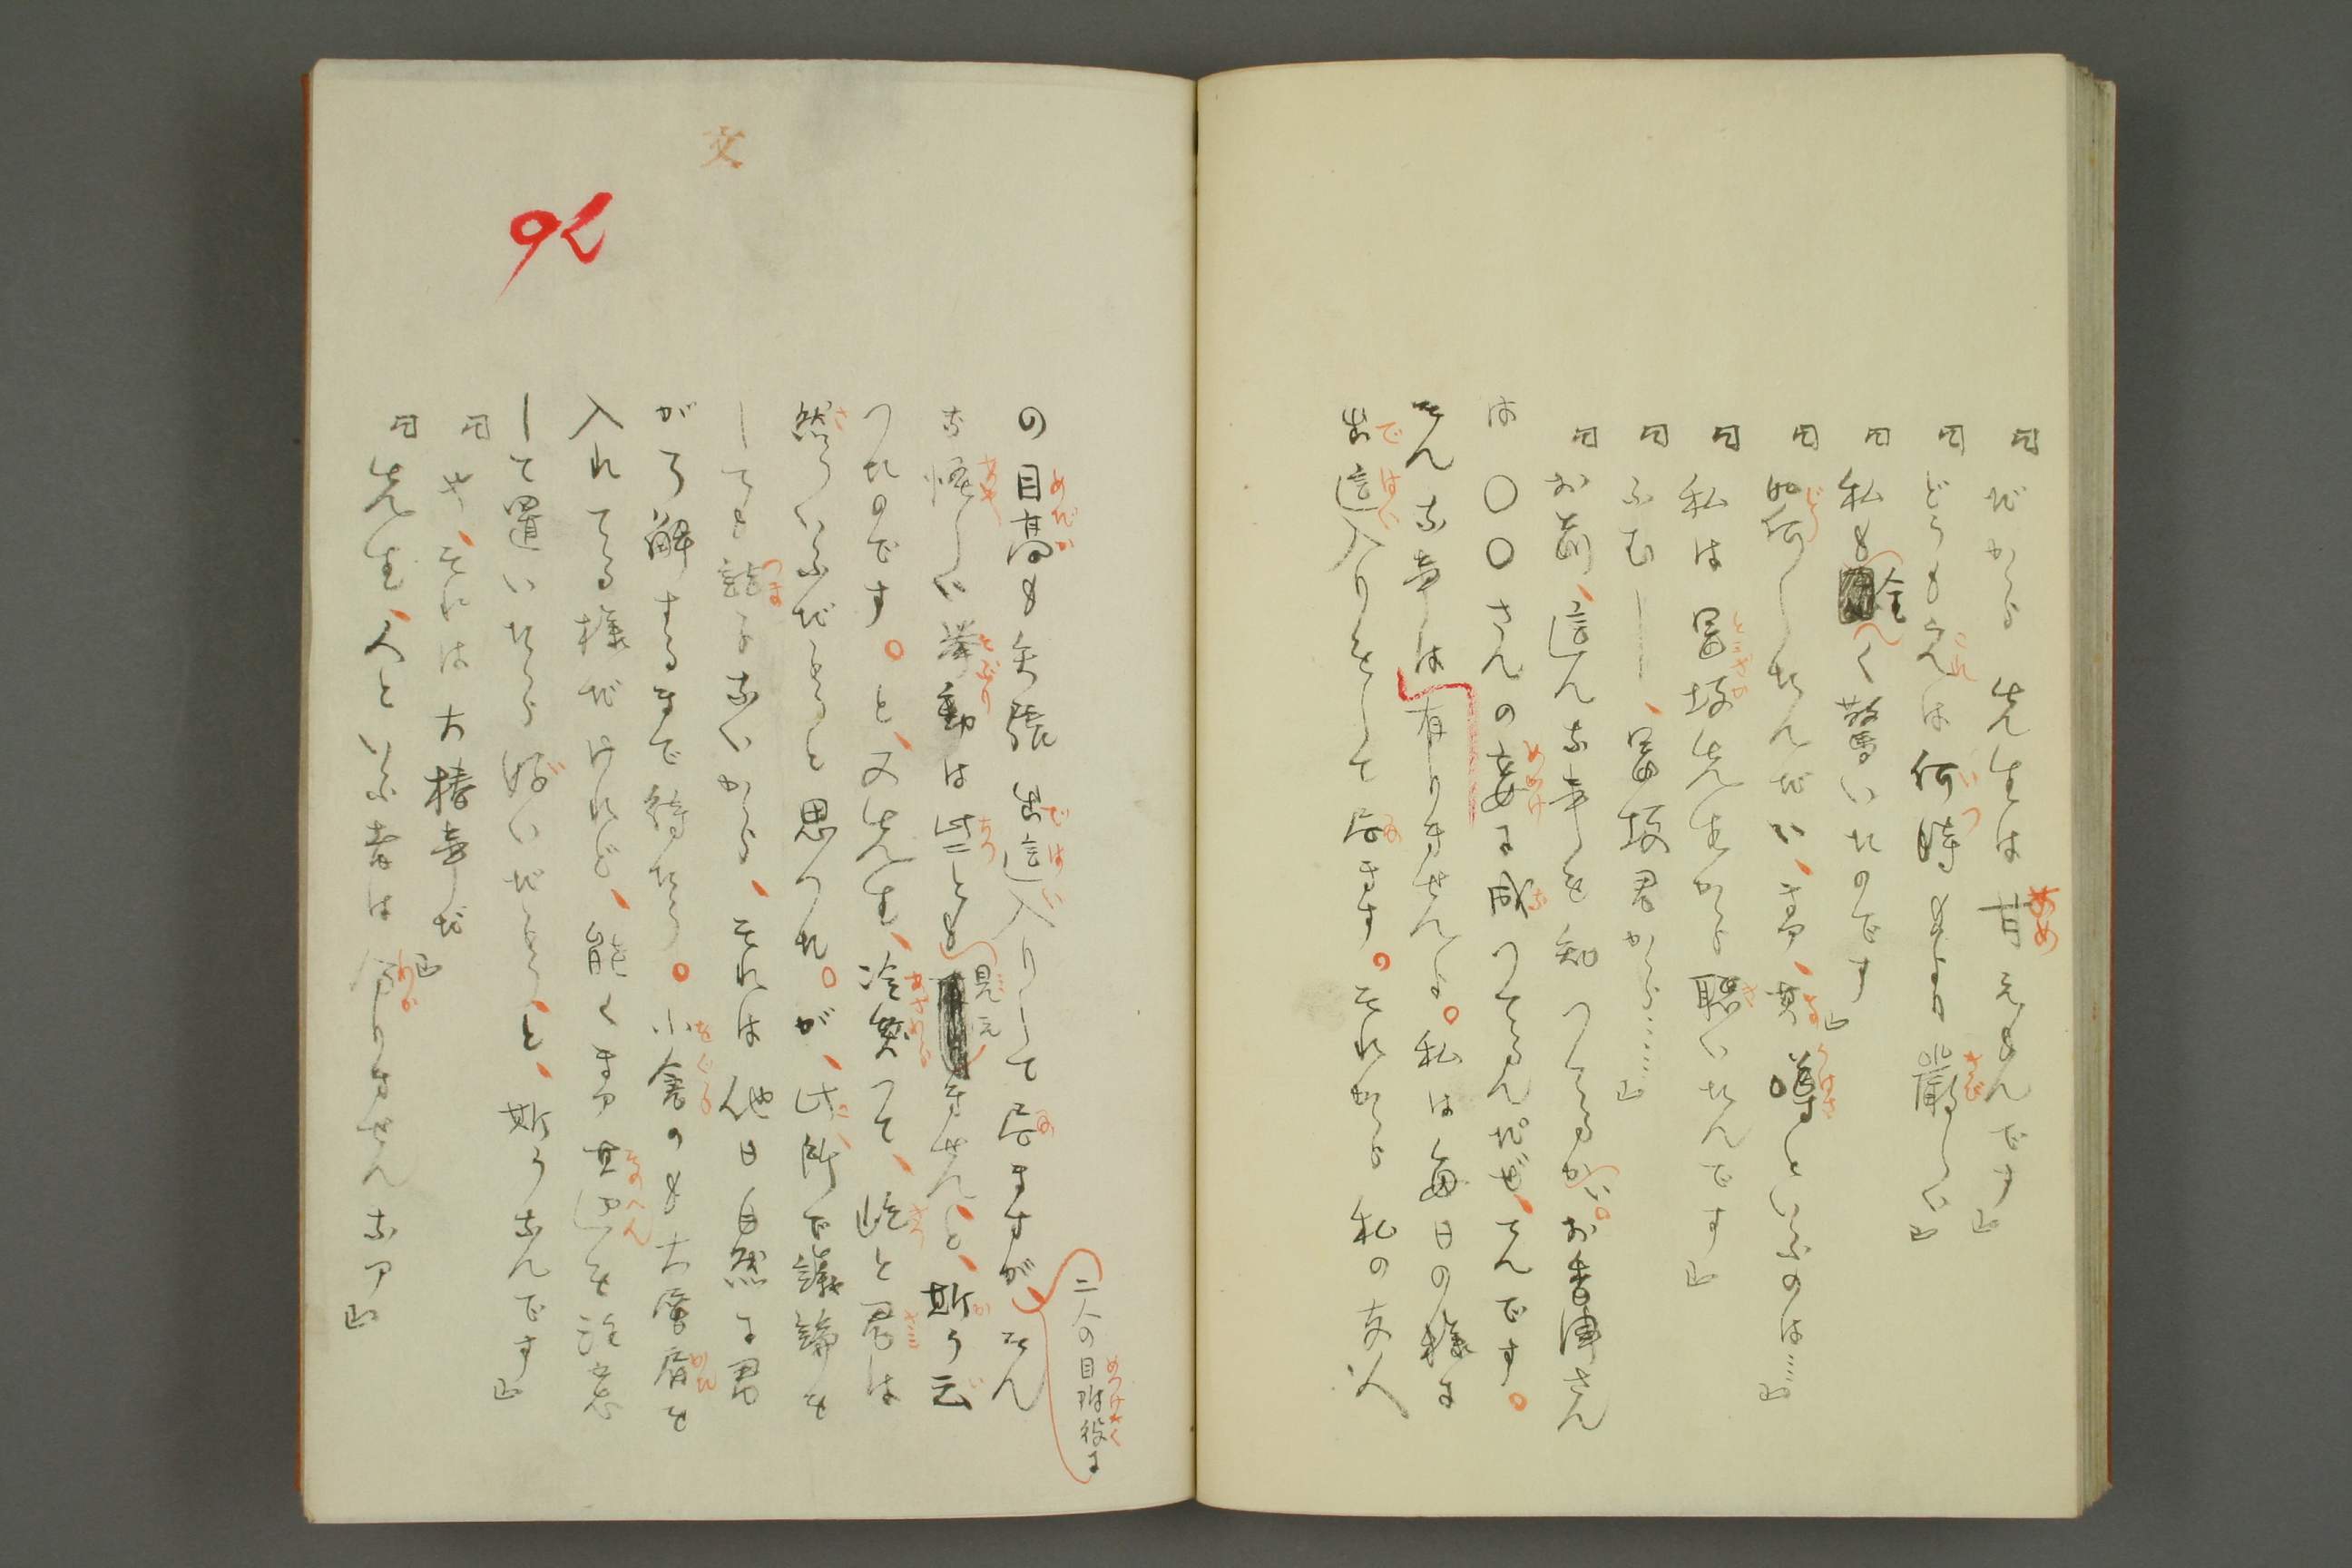 「だから先生は甘えもんです」
「どうも之は何時もより嚴しい」
「私も全く驚いたのです」
「如何したんだい、まア、其噂といふのは……」
「私は冨坂先生から聽いたんです」
「ふむ——、冨坂君から……」
「お前、這んな事を知つてるかい。お
は〇〇さんの妾に成つてるんだぜ、てんです。
そんな事は有りませんよ。私は毎日の様に
出這入りをして居ます。それから私の友人
の目高も矢張出這入りして居ますが、二人の目附役にそん
な怪しい挙動は些とも見えませんと、斯う云
つたのです。と、又先生、冷笑つて、屹と君は
然ういふだらうと思つた。が、此所で議論を
しても詰らないから、それは他日自然に君
がら解するまで待たう。小倉のも大層肩を
入れてる様だけれど、能くまア其辺を注意
して置いたら好いだらうと、斯うなんです」
「や、それは大椿事だ」
「先生、人といふ者は分りませんなア」
文